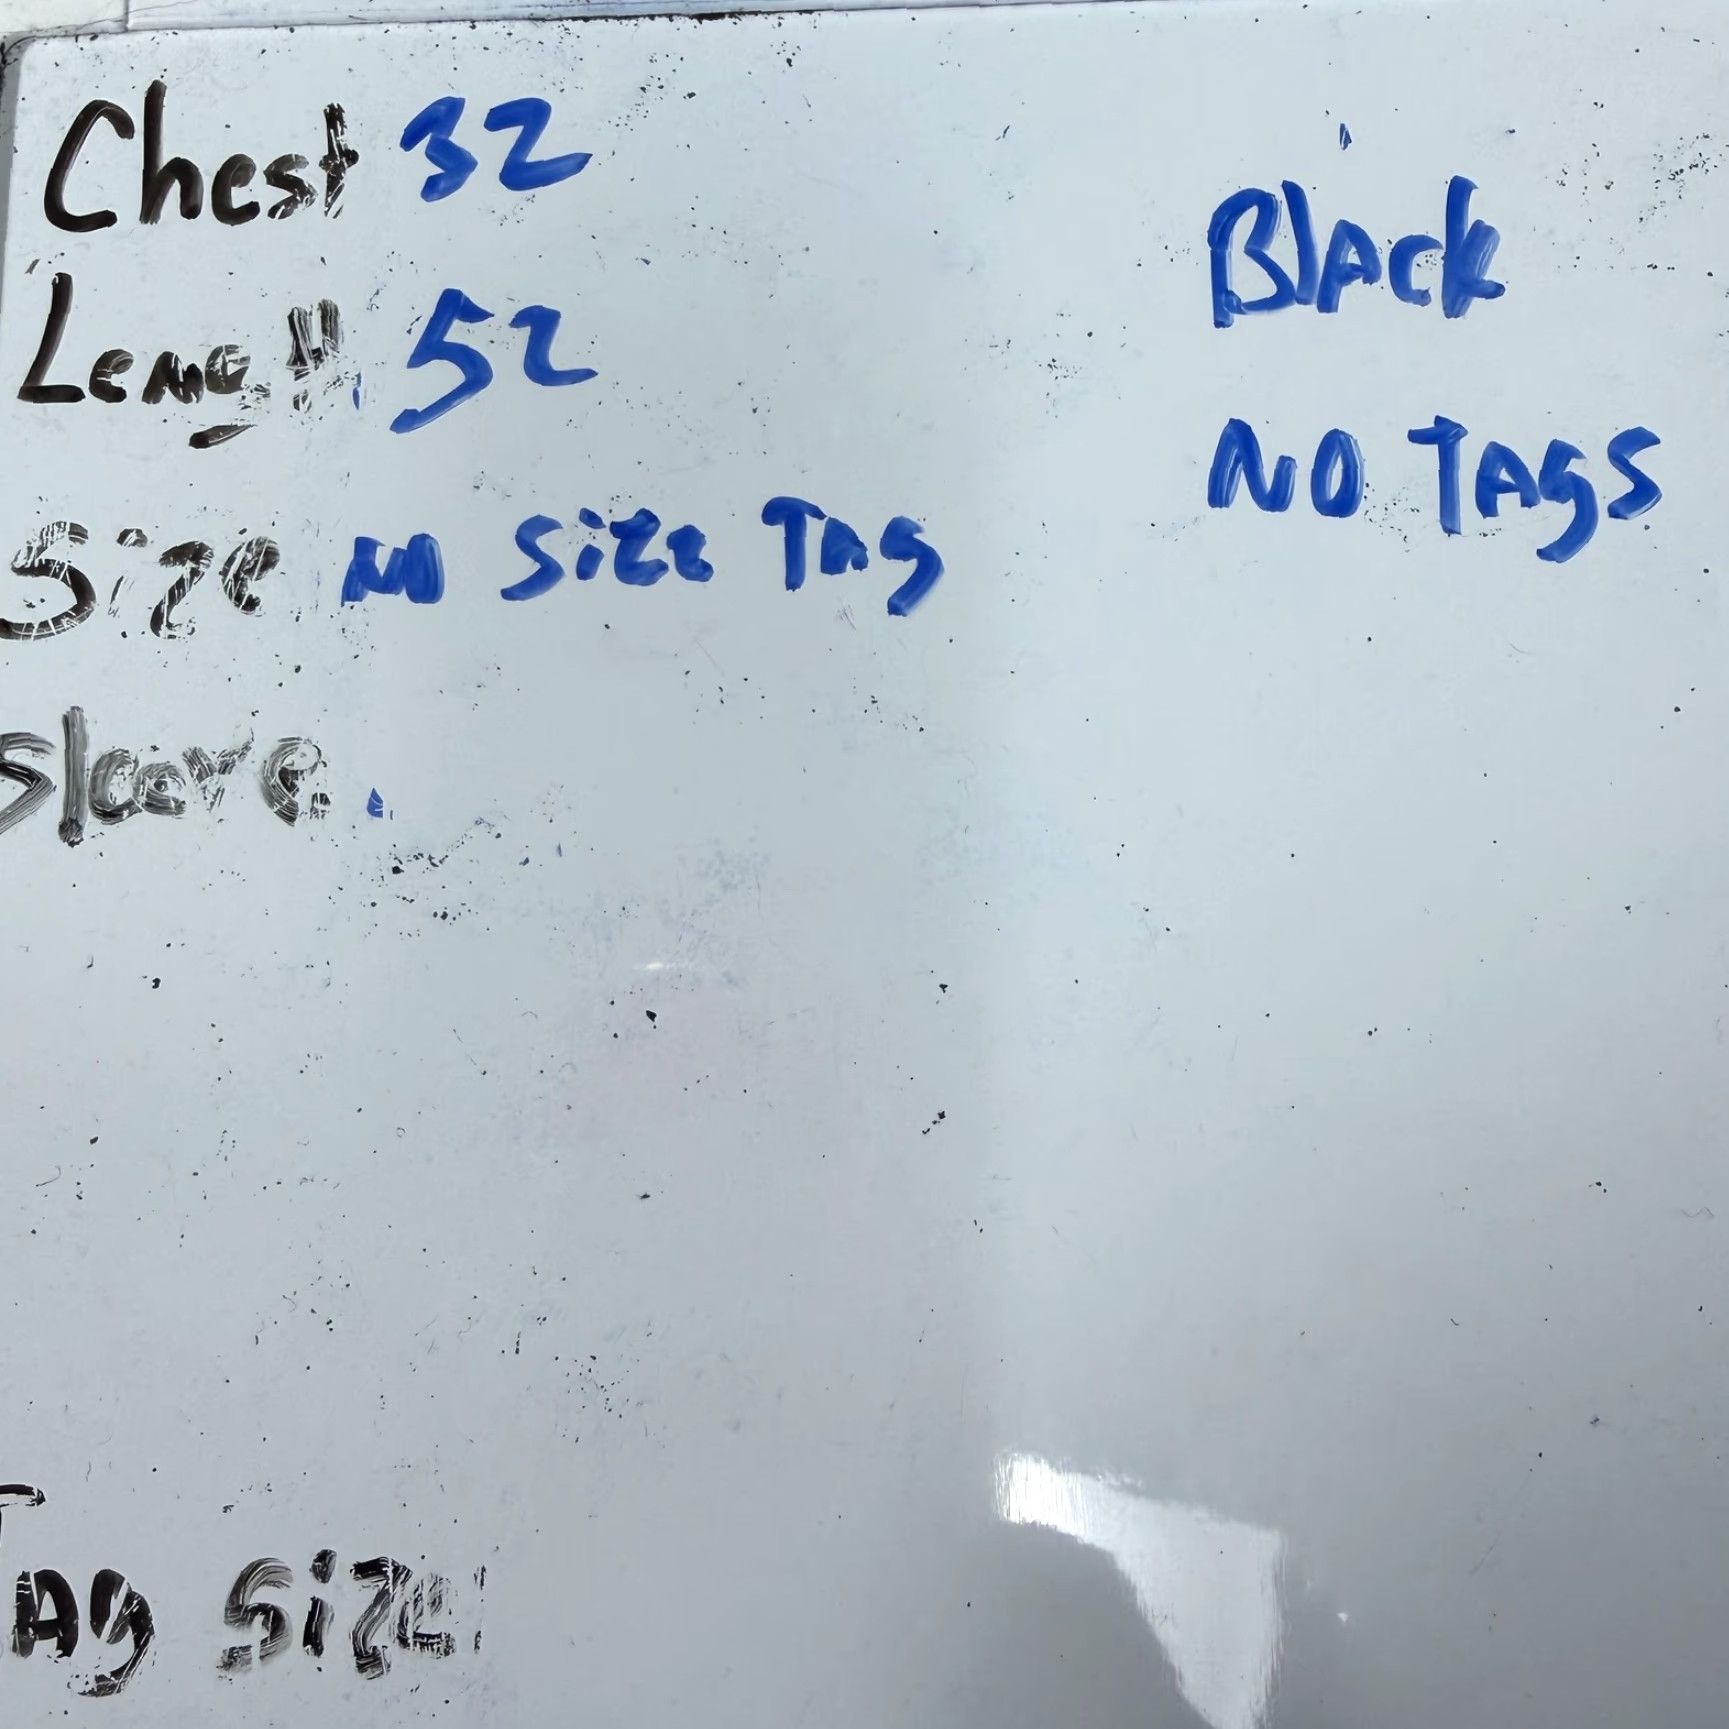 Chest 32
Length 52
Size NO Size Tag
Sleeve
Tag Size
Black
NO TAgs